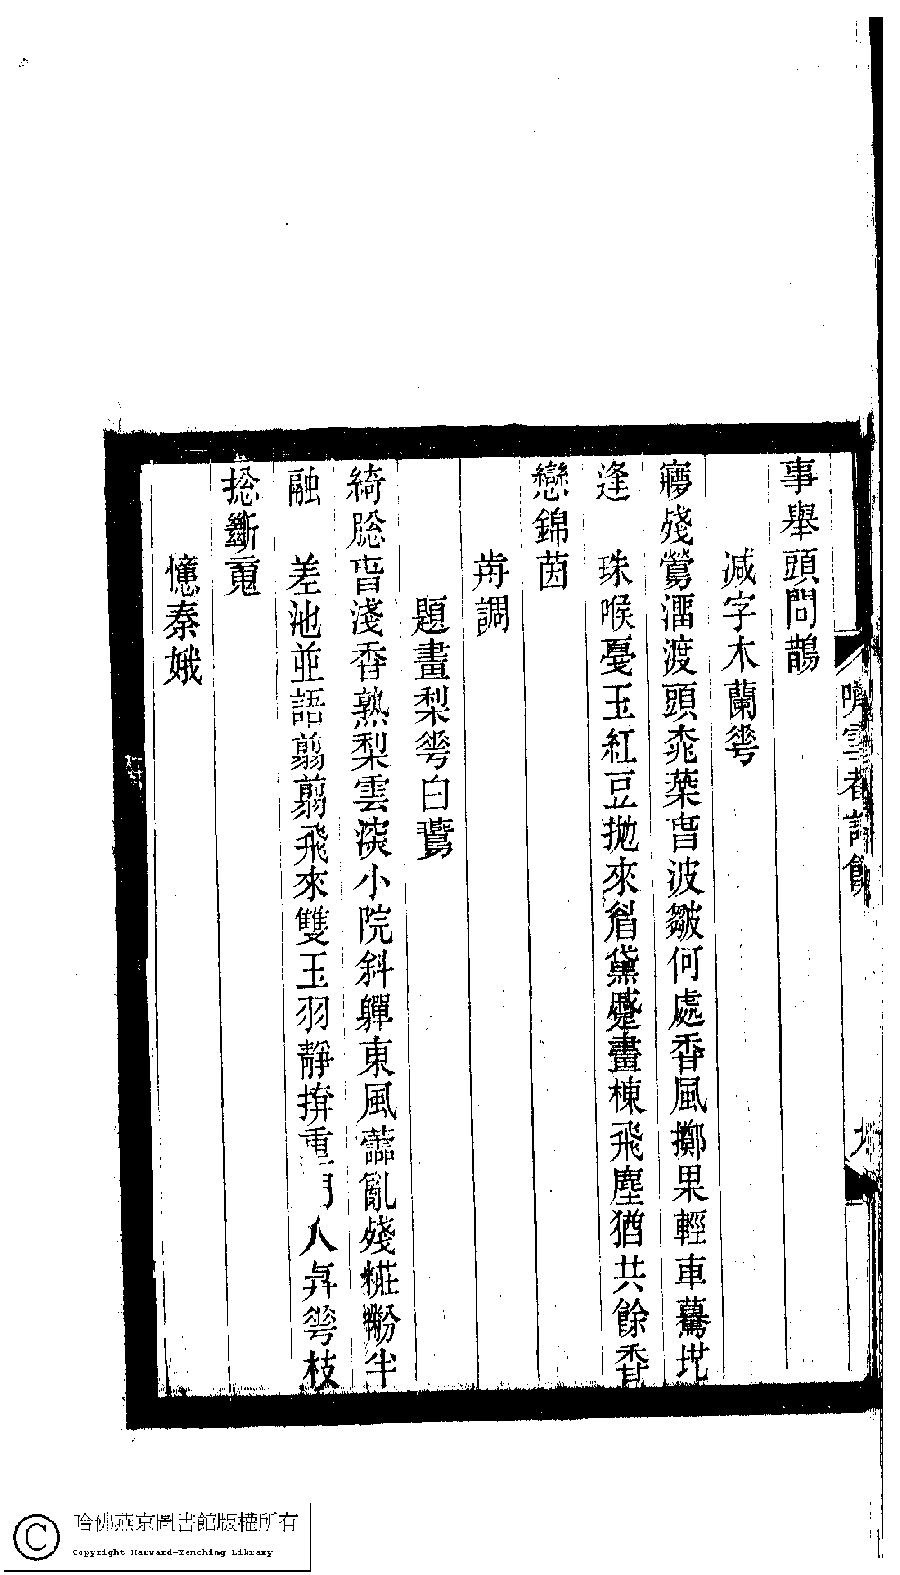 事舉頭問鵲
减字木蘭蕚
㝱殘鶯溜渡頭桃葉
波皺何處香風擲果輕車驀
逢　珠喉戛玉紅豆抛來
黛蹙畫棟飛塵猶共餘香
戀錦茵
歬調
題畫梨蕚白鷰
綺
淺香熟梨雲淡小院斜軃東風蘂亂殘糚粉半
融　差池並語翦翦飛來雙玉羽靜揜重門人與蕚枝
捴斷䰟
憶秦娥
九
哈佛燕京圖書館版權所有
Copyright Harvard-Yenching Library